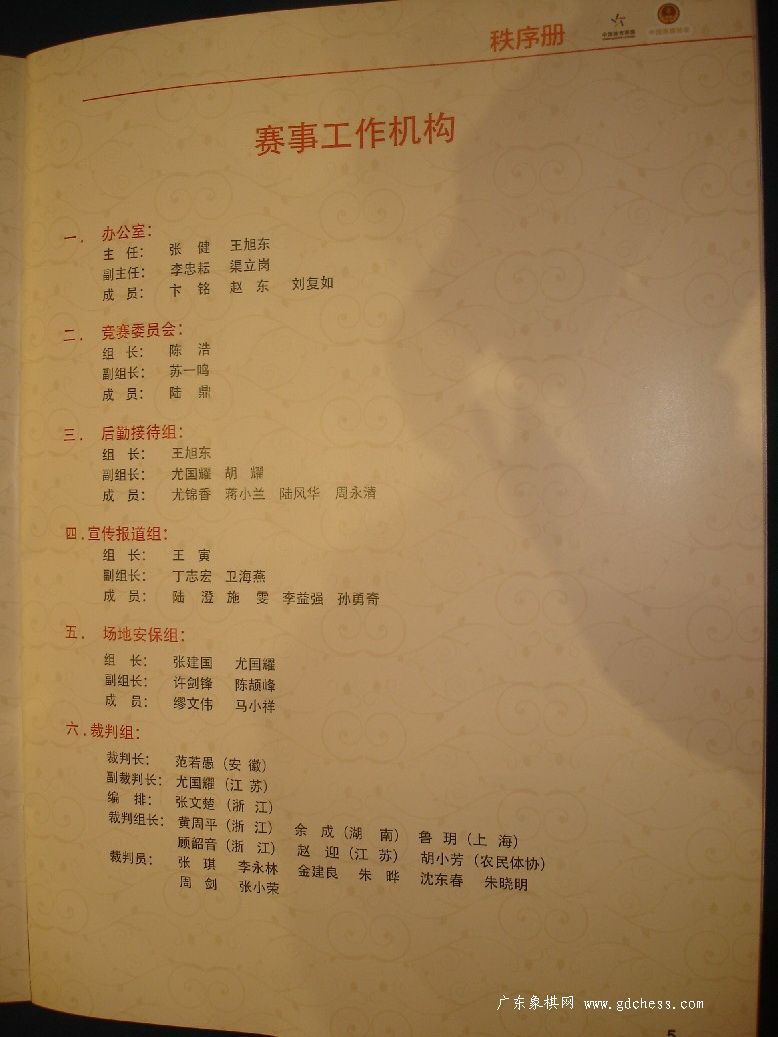 秩序册
赛事工作机构
一. 办公室：
主 任： 张 健 王旭东
副主任： 李忠耘 渠立岗
成 员： 卞 铭 赵 东 刘复如
二. 竞赛委员会：
组 长： 陈 浩
副组长： 苏一鸣
成 员： 陆 鼎
三. 后勤接待组：
组 长： 王旭东
副组长： 尤国耀 胡 耀
成 员： 尤锦香 蒋小兰 陆风华 周永清
四. 宣传报道组：
组 长： 王 寅
副组长： 丁志宏 卫海燕
成 员： 陆 澄 施 雯 李益强 孙勇奇
五. 场地安保组：
组 长： 张建国 尤国耀
副组长： 许剑锋 陈颉峰
成 员： 缪文伟 马小祥
六. 裁判组：
裁判长： 范若愚（安 徽）
副裁判长： 尤国耀（江 苏）
编 排： 张文楚（浙 江）
裁判组长： 黄周平（浙 江） 余 成（湖 南） 鲁 玥（上 海）
顾韶音（浙 江） 赵 迎（江 苏） 胡小芳（农民体协）
裁判员： 张 琪 李永林 金建良 朱 晔 沈东春 朱晓明
周 剑 张小荣
广东象棋网 www.gdchess.com
5